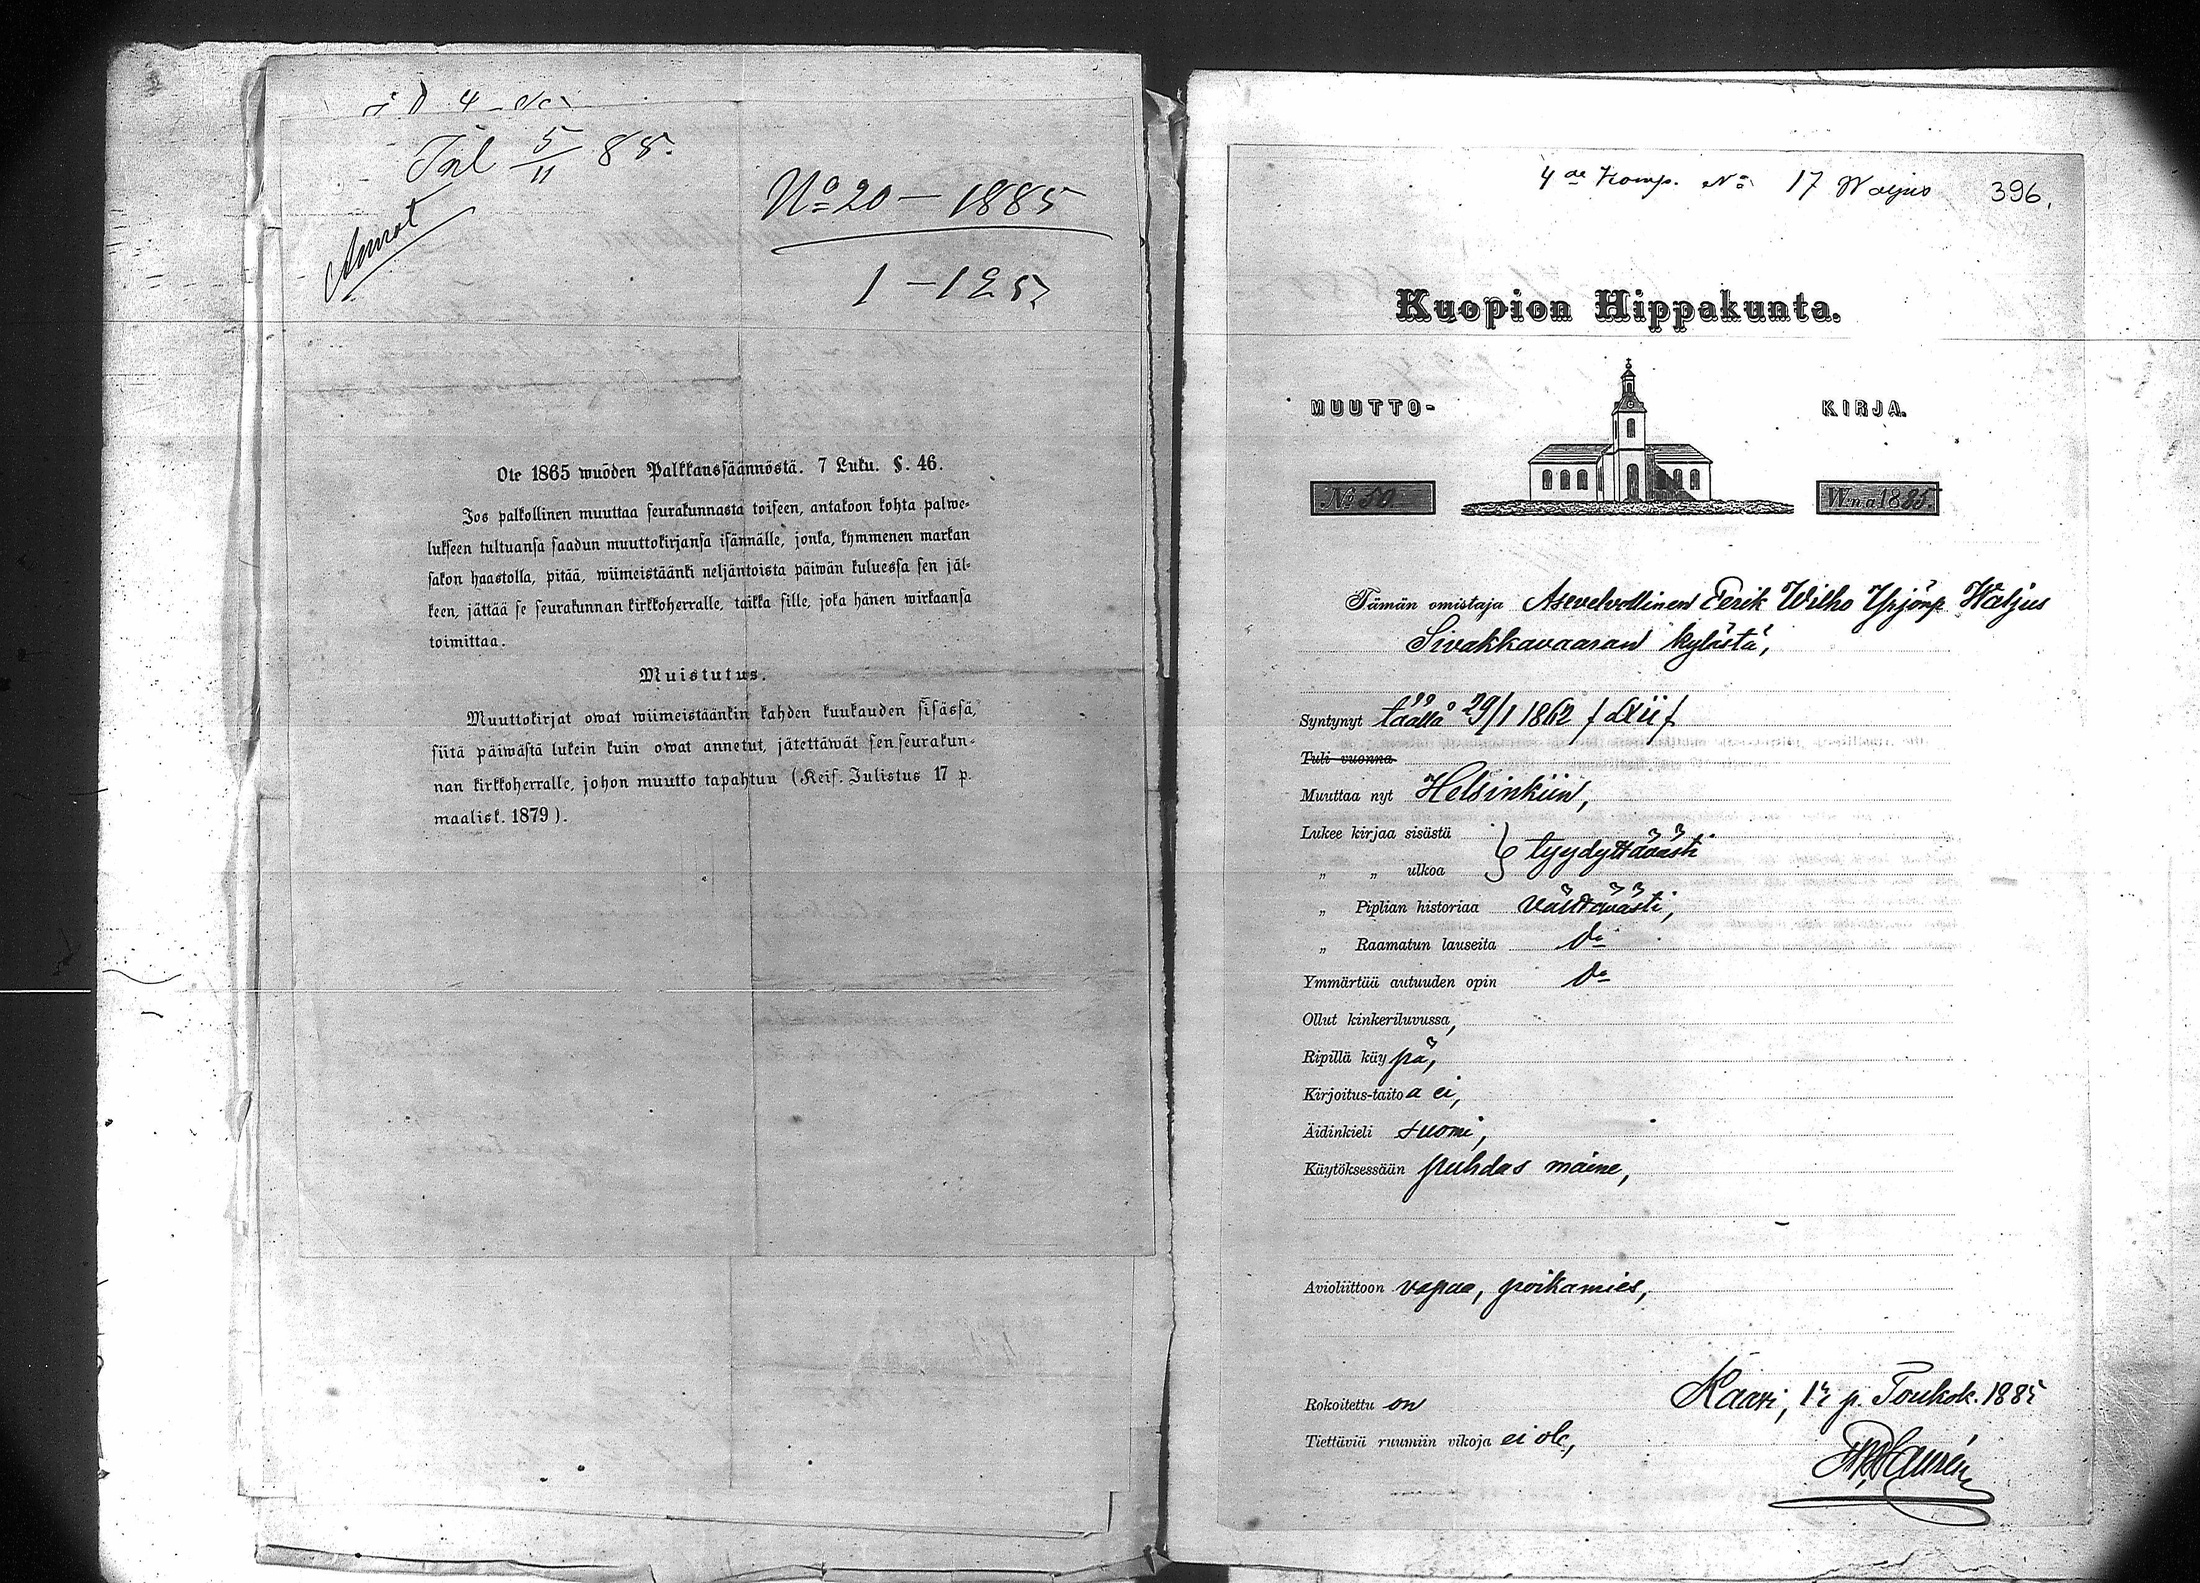 Inl 5/11 85.
Annot
No 20 — 1885
1 — 125
Ote 1865 wuoden Palkkaussäännöstä. 7 Luku. §. 46.
Jos palkollinen muuttaa seurakunnasta toiseen, antakoon kohta palwe-
lukseen tultuansa saadun muuttokirjansa isännälle, jonka, kymmenen markan
sakon haastolla, pitää, wiimeistäänki neljäntoista päiwän kuluessa sen jäl-
keen, jättää se seurakunnan kirkkoherralle, taikka sille, joka hänen wirkaansa
toimittaa.
Muistutus.
Muuttokirjat owat wiimeistäänkin kahden kuukauden sisässä,
siitä päiwästä lukein kuin owat annetut, jätettäwät sen seurakun-
nan kirkkoherralle, johon muutto tapahtuu (Keis. Julistus 17 p.
maalisk. 1879).
4de Komp. No 17 Waljus 396.
Kuopion Hippakunta.
MUUTTO- KIRJA.
No 50. W:na 1885.
Tämän omistaja Asevelvollinen Eerik Wilho Yrjönp. Waljus
Sivakkavaaran kylästä,
Syntynyt täällä 29/1 1862 / LXII /
Tuli vuonna
Muuttaa nyt Helsinkiin,
Lukee kirjaa sisästä } tyydyttäväästi
„ „ ulkoa
„ Piplian historiaa välttäväästi,
„ Raamatun lauseita do
Ymmärtää autuuden opin do
Ollut kinkeriluvussa,
Ripillä käypä,
Kirjoitus-taitoa ei,
Äidinkieli suomi,
Käytöksessään puhdas maine,
Avioliittoon vapaa, poikamies,
Rokoitettu on
Kaavi, 15 p. Toukok. 1885
Tiettäviä ruumiin vikoja ei ole,
Laurén